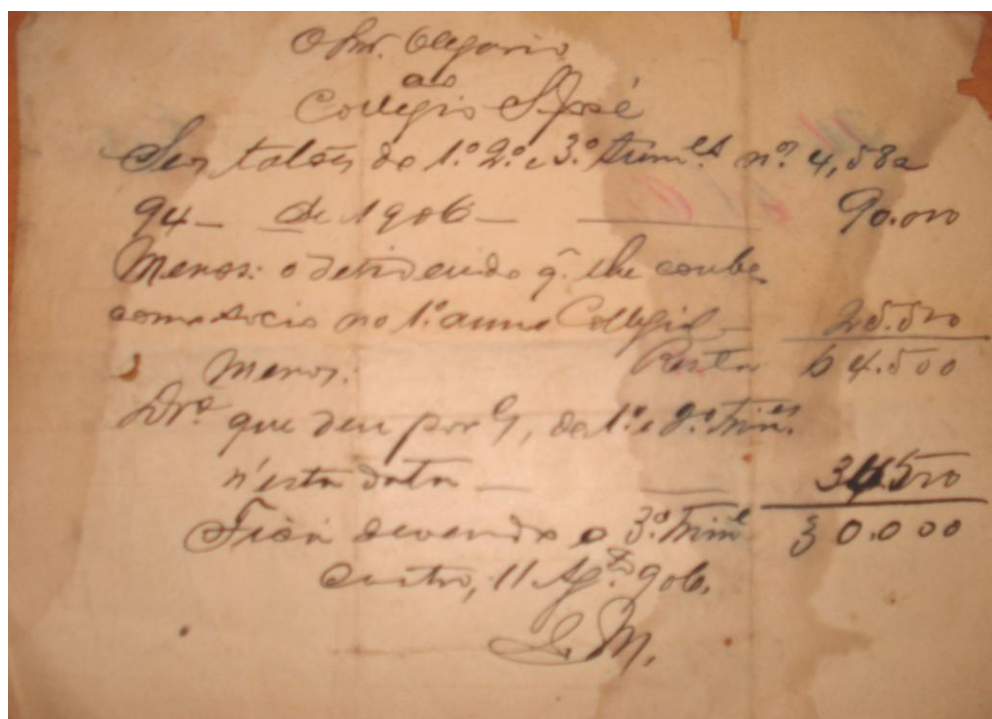 O Snr. Olegario
ao
Collegio S. José
talões do 1.º 2.º e 3.º Trim.es nº. 4, 58 a
94 — de 1906 — 90.000
Menos: o dividendo q. lhe coube
como socio no 1.º anno Collegial — 25.500
Menos: Resta 64.500
Dr.º que deu por C, do 1.º e 2.º Trim.es
n'esta data — 34.500
Fica devendo o 3.º Trim.e 30.000
Castro, 11 Ag.to 906.
S. M.